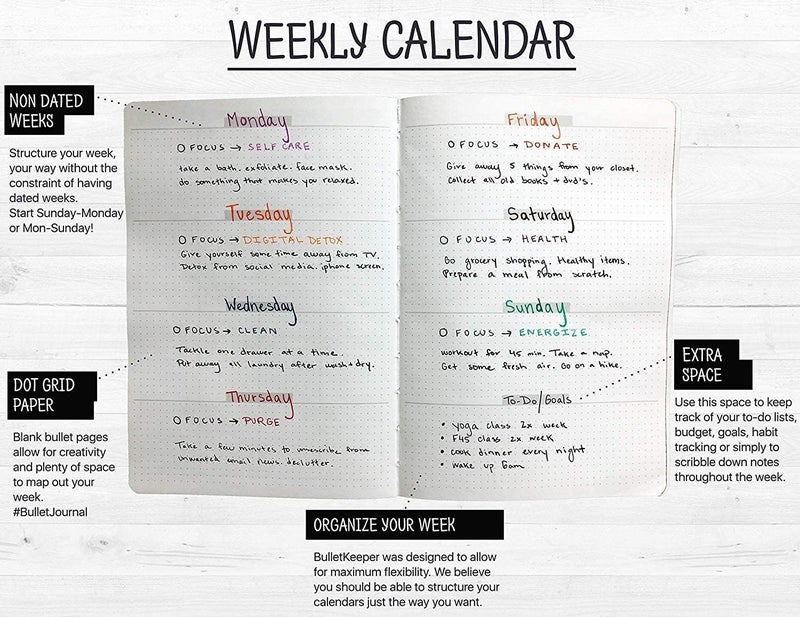 WEEKLY CALENDAR
NON DATED
WEEKS
Structure your week,
your way without the
constraint of having
dated weeks.
Start Sunday-Monday
or Mon-Sunday!
DOT GRID
PAPER
Blank bullet pages
allow for creativity
and plenty of space
to map out your
week.
#BulletJournal
Monday
O FOCUS → SELF CARE
take a bath. exfoliate. face mask.
do something that makes you relaxed.
Tuesday
O FOCUS → DIGITAL DETOX
Give yourself some time away from TV.
Detox from social media. iphone screen.
Wednesday
O FOCUS → CLEAN
Tackle one drawer at a time.
Put away all laundry after wash + dry.
Thursday
O FOCUS → PURGE
Take a few minutes to unsubscribe from
unwanted email news. declutter.
Friday
O FOCUS → DONATE
Give away 5 things from your closet.
Collect all old books + dvd's.
Saturday
O FOCUS → HEALTH
Go grocery shopping. Healthy items.
Prepare a meal from scratch.
Sunday
O FOCUS → ENERGIZE
workout for 45 min. Take a nap.
Get some fresh air. Go on a hike.
To-Do/Goals
• yoga class 2x week
• F45 class 2x week
• cook dinner every night
• wake up 6am
EXTRA
SPACE
Use this space to keep
track of your to-do lists,
budget, goals, habit
tracking or simply to
scribble down notes
throughout the week.
ORGANIZE YOUR WEEK
BulletKeeper was designed to allow
for maximum flexibility. We believe
you should be able to structure your
calendars just the way you want.